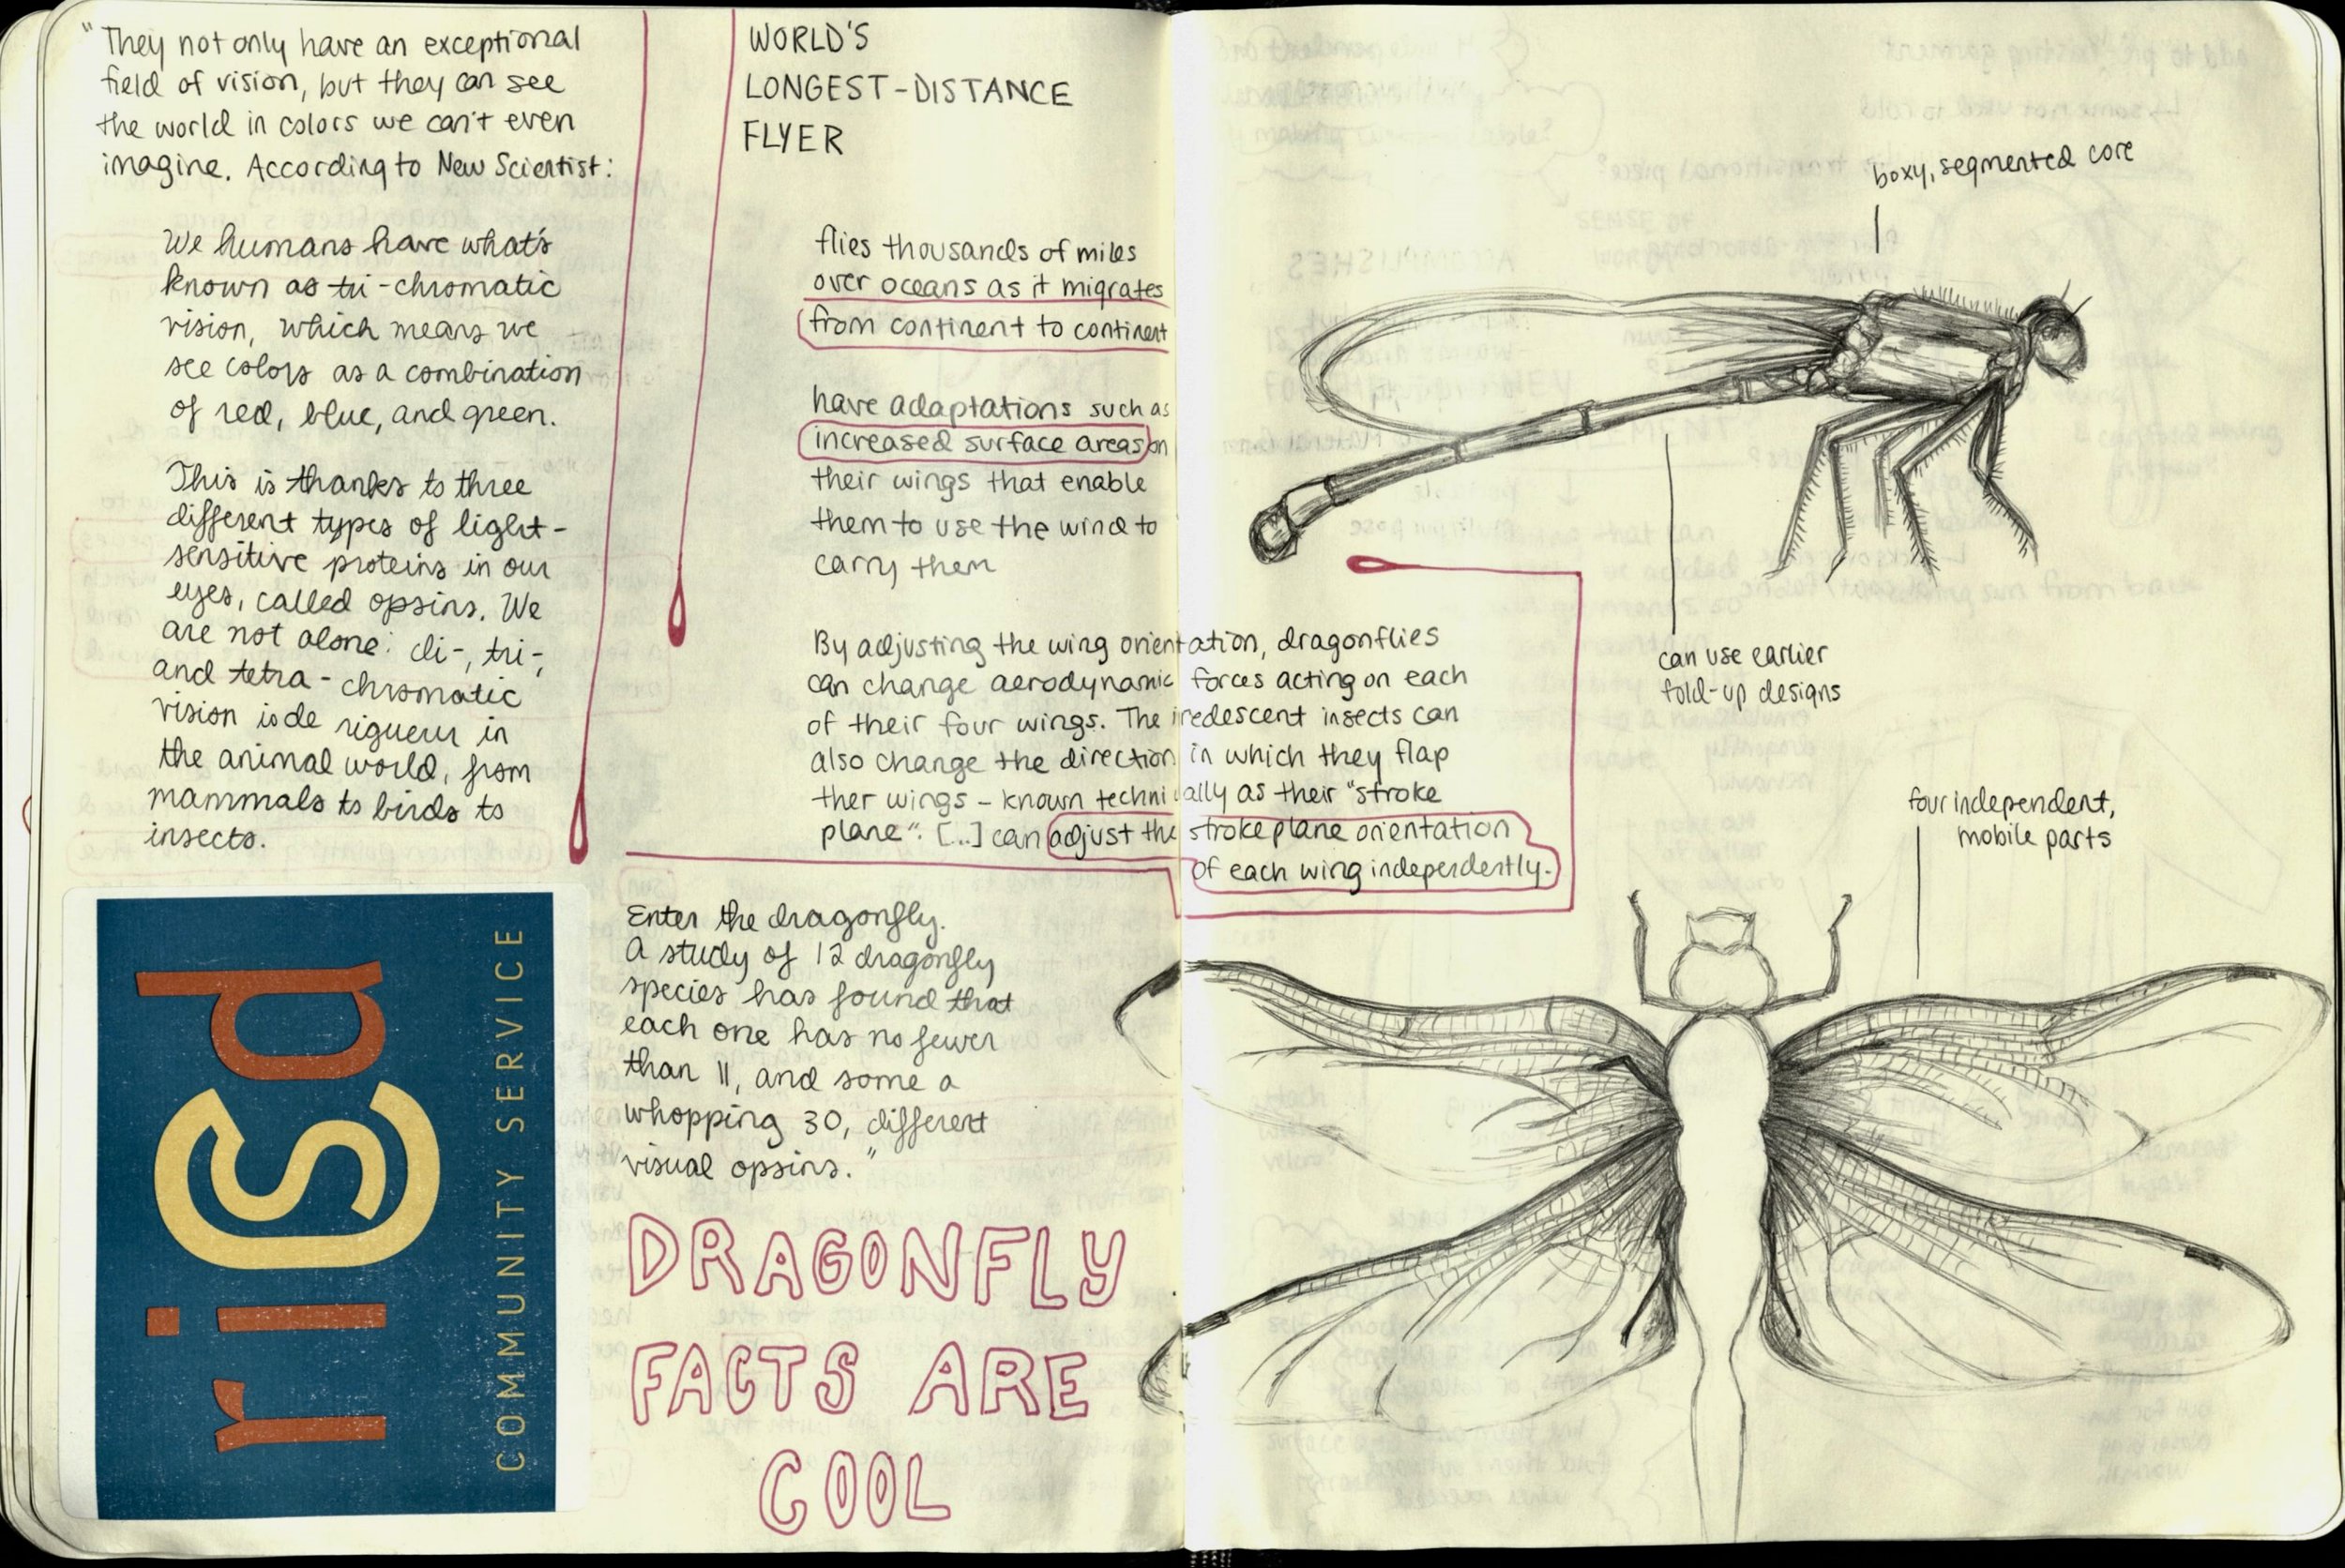 "They not only have an exceptional
field of vision, but they can see
the world in colors we can't even
imagine. According to New Scientist:
We humans have what's
known as tri-chromatic
vision, which means we
see colors as a combination
of red, blue, and green.
This is thanks to three
different types of light-
sensitive proteins in our
eyes, called opsins. We
are not alone: di-, tri-,
and tetra-chromatic
vision is de rigueur in
the animal world, from
mammals to birds to
insects.
risd
COMMUNITY SERVICE
Enter the dragonfly.
A study of 12 dragonfly
species has found that
each one has no fewer
than 11, and some a
whopping 30, different
visual opsins."
DRAGONFLY
FACTS ARE
COOL
WORLD'S
LONGEST-DISTANCE
FLYER
flies thousands of miles
over oceans as it migrates
from continent to continent
have adaptations such as
increased surface areas on
their wings that enable
them to use the wind to
carry them
By adjusting the wing orientation, dragonflies
can change aerodynamic forces acting on each
of their four wings. The iredescent insects can
also change the direction in which they flap
ther wings - known technically as their "stroke
plane". [...] can adjust the stroke plane orientation
of each wing independently.
boxy, segmented core
can use earlier
fold-up designs
four independent,
mobile parts